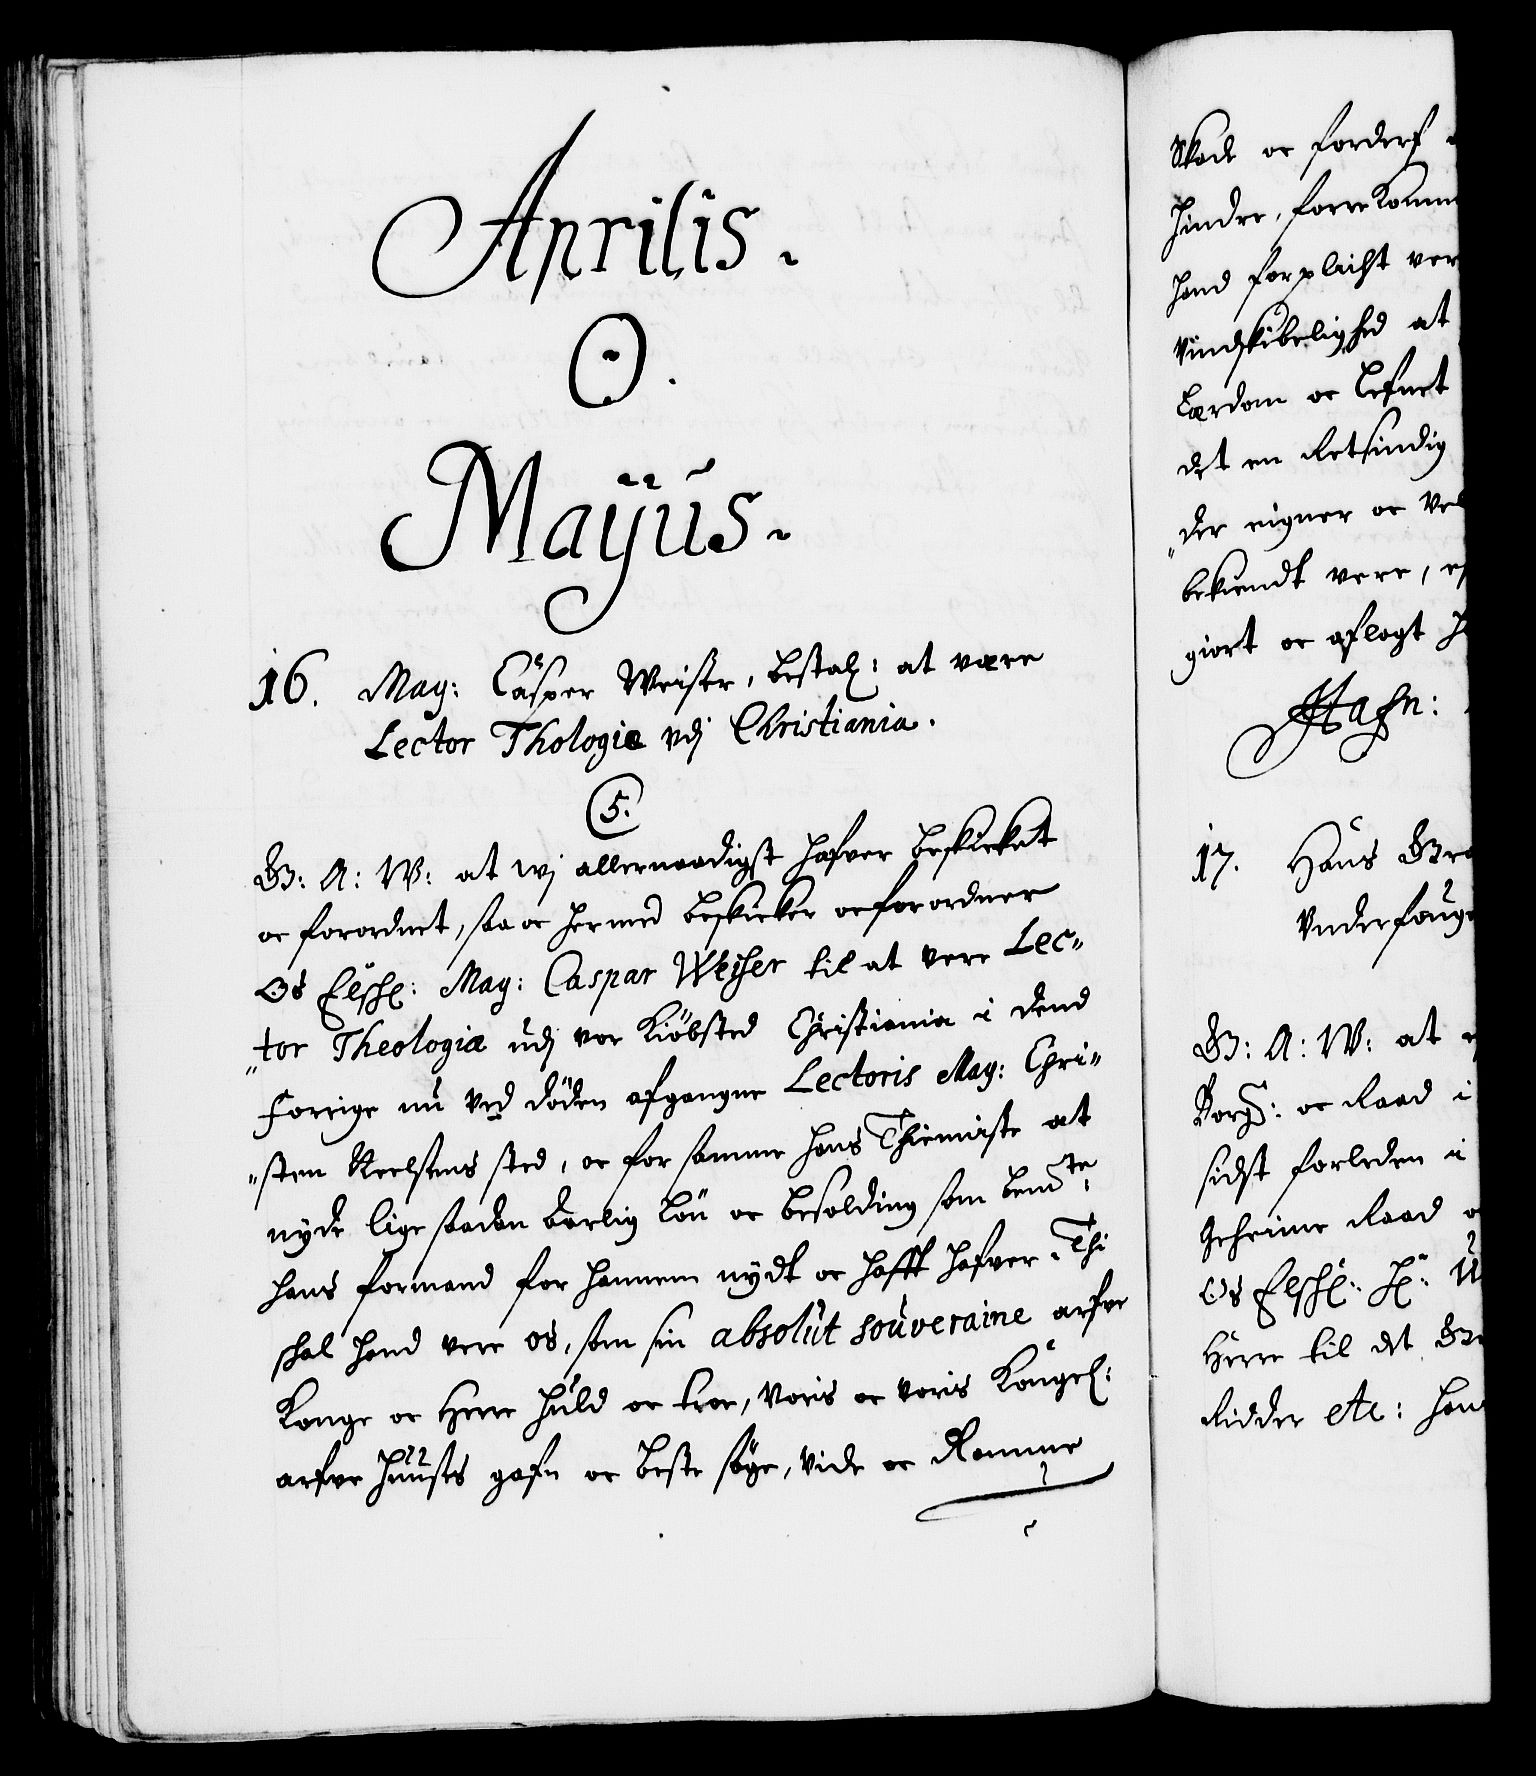 Aprilis.
O.
Maÿus.
16. Mag: Casper Weiser, bestal: at være
Lector Thologiæ udj Christiania.
5.
G: A: W: at wj allernaadigst hafver beskicket
oc forordnet, saa oc hermed beskicker oc forordner
Os Elschl: Mag: Caspar Weiser til at vere Lec-
"tor Theologiæ udj vor Kiøbsted Christiania i dend
forrige nu ved døden afgangne Lectoris Mag: Chri-
"sten Neelsens sted, oc for samme hans Thieniste at
nyde lige saadan Aarlig løn oc besolding som bemte:
hans formand for hannem nydt oc hafft hafver. Thi
schal hand vere os, som sin absolut souveraine arfve
Konge oc Herre huld oc troe, Voris oc voris Kongel:
arfve Huuses gafn oc beste søge, vide oc Ramme
Skade oc forderf
hindre, forrekomm
hand forplicht ver
Vindskibelighed at
Lærdom oc lefnet
det en Retsindig
"der eigner oc Vel
bekiendt vere,
giort oc aflagt
Hafn:
17. Hans
Underfoug
G: A: W: at
Borg: oc Raad i
sidst forleden i
Geheime Raad
Os Elschl: H:
Herre til det
Ridder etc: han